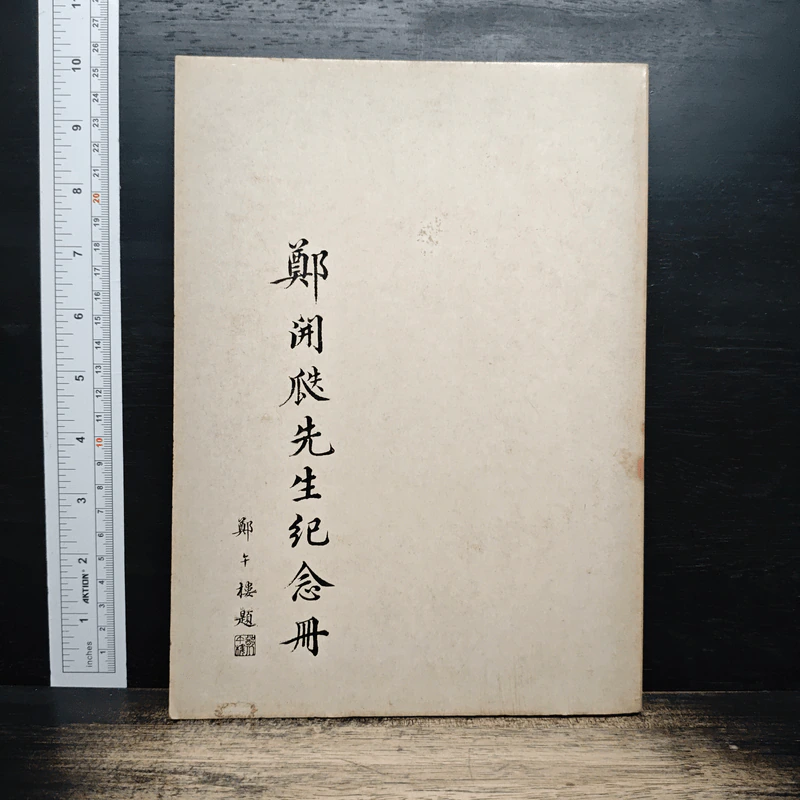 鄭開瓞先生紀念冊
鄭午樓題
inches 1 2 3 4 5 6 7 8 9 10 11
AKTION®
1 2 3 4 5 6 7 8 9 10 11 12 13 14 15 16 17 18 19 20 21 22 23 24 25 26 27